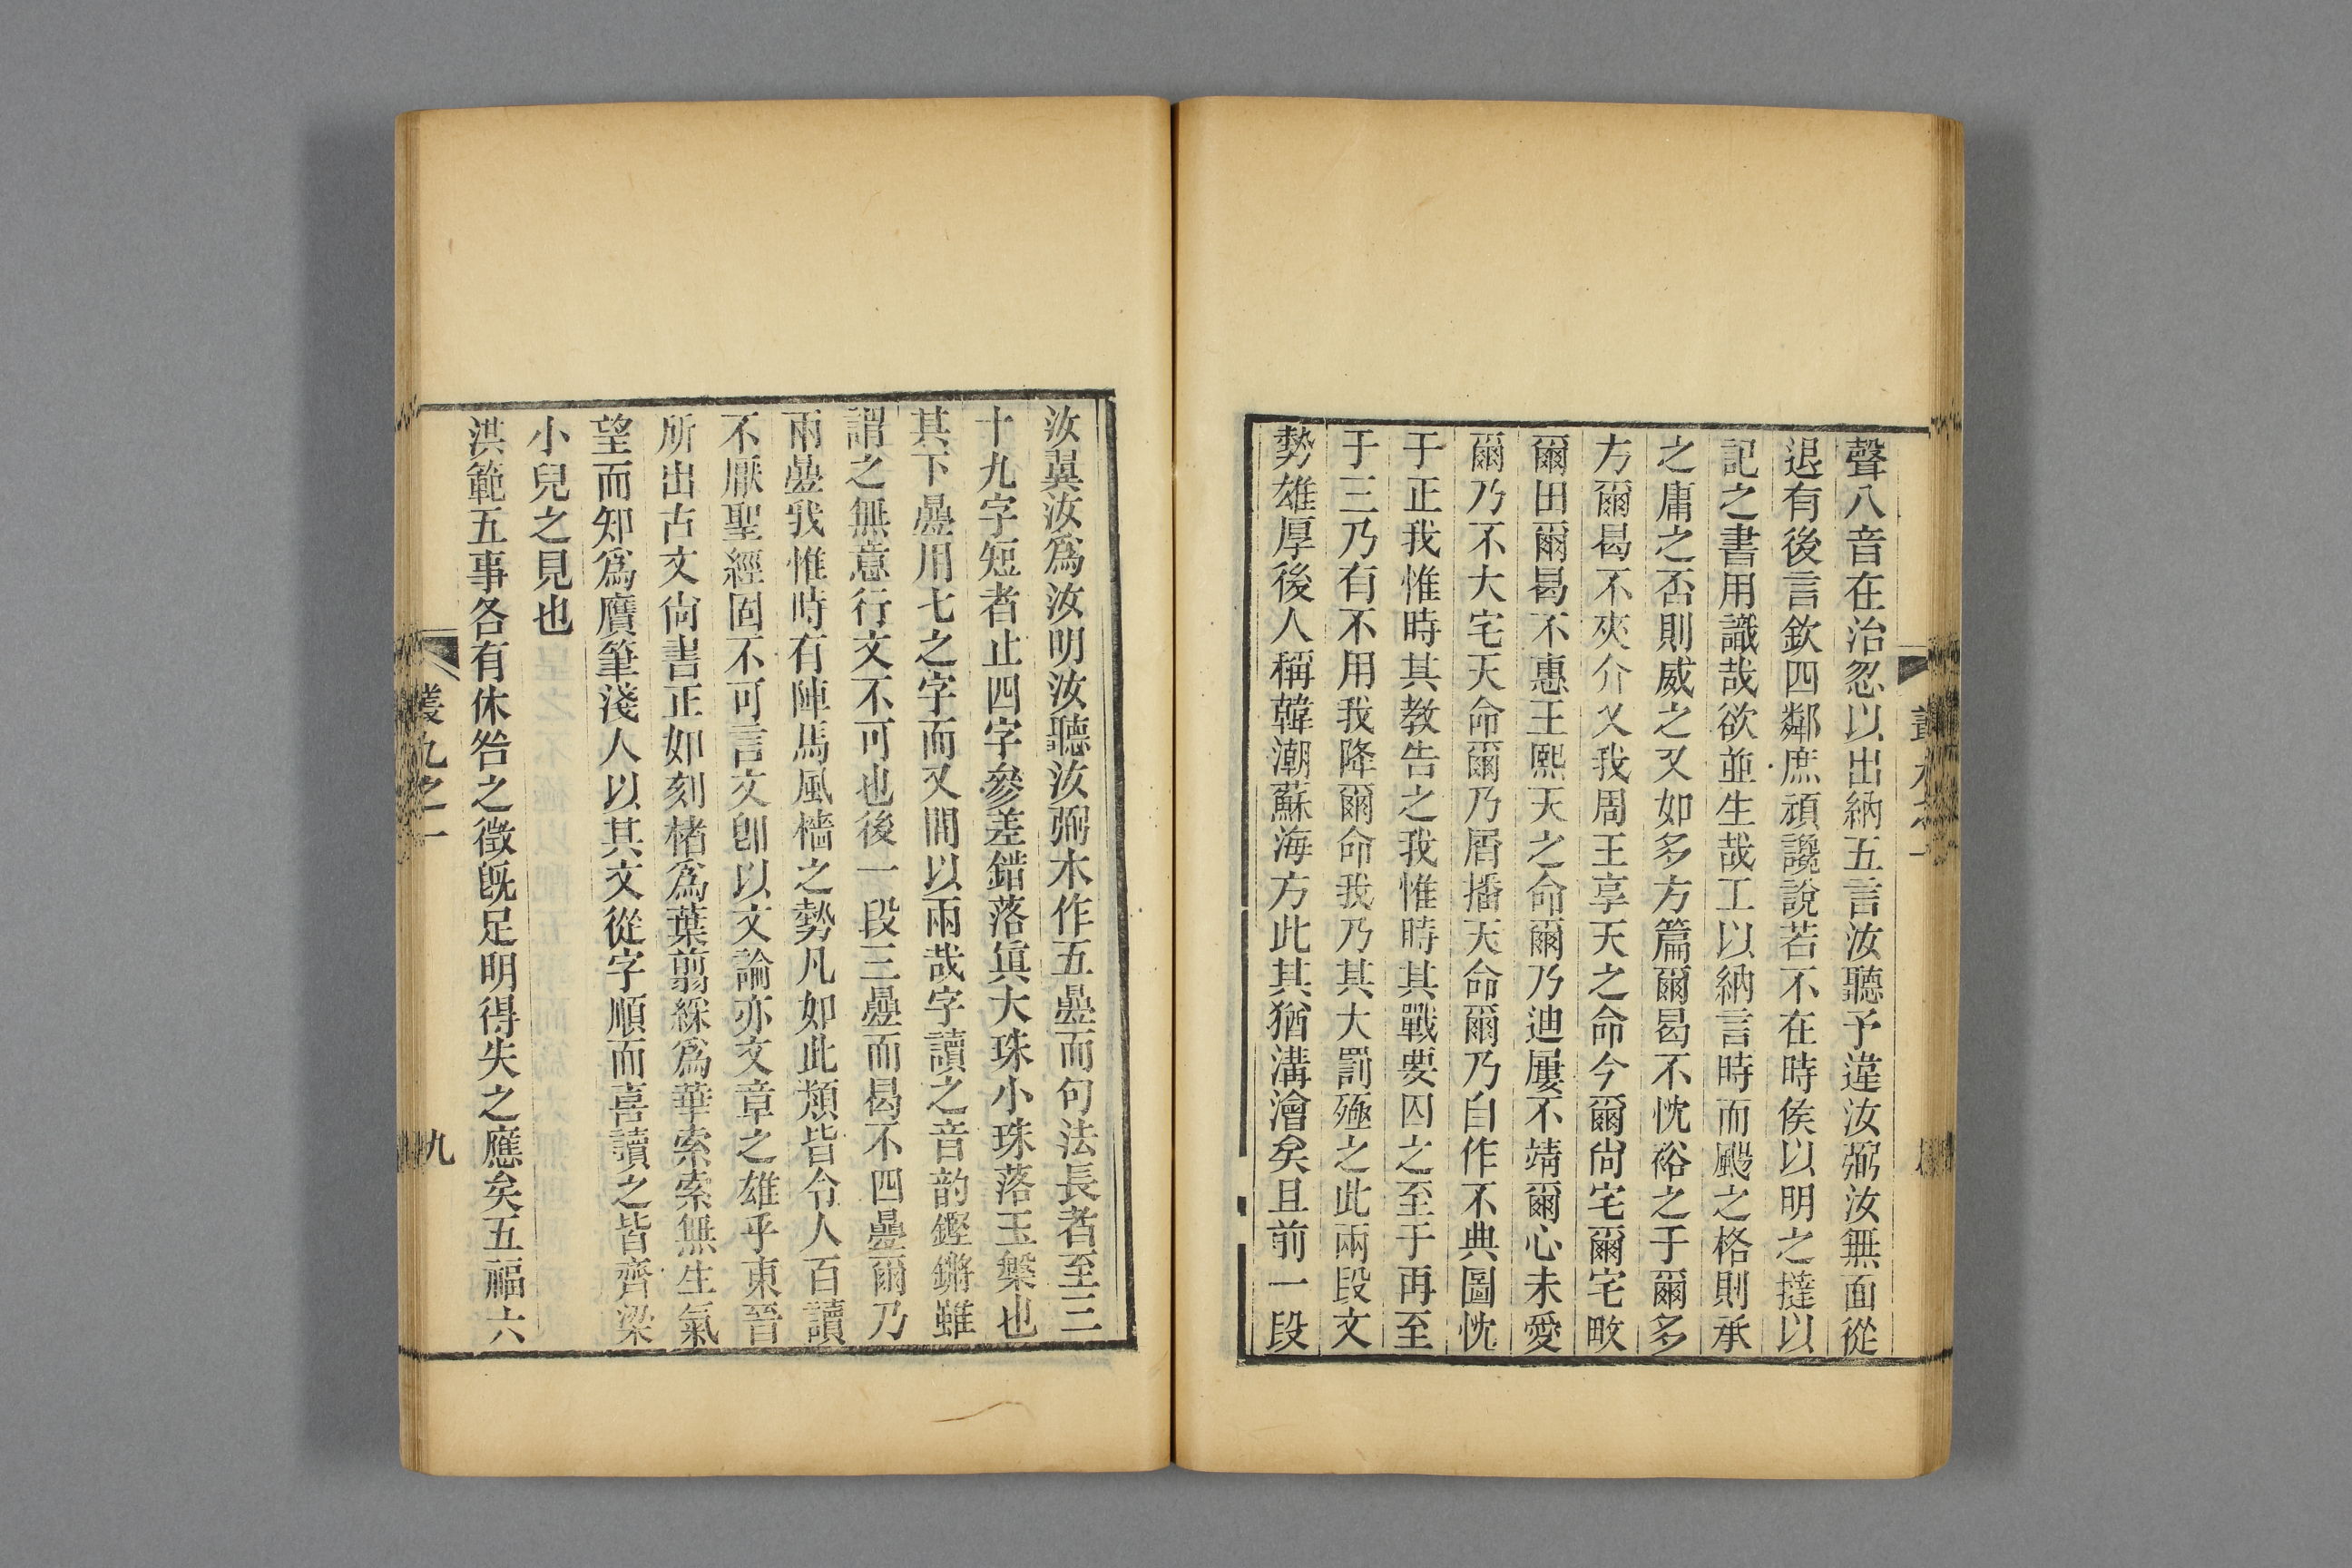 聲八音在治忽以出納五言汝聽予違汝弼汝無面從
退有後言欽四鄰庶頑讒說若不在時侯以明之撻以
記之書用識哉欲並生哉工以納言時而颺之格則承
之庸之否則威之又如多方篇爾曷不忱裕之于爾多
方爾曷不夾介乂我周王享天之命今爾尙宅爾宅畋
爾田爾曷不惠王熙天之命爾乃迪屢不靖爾心未愛
爾乃不大宅天命爾乃屑播天命爾乃自作不典圖忱
于正我惟時其教告之我惟時其戰要囚之至于再至
于三乃有不用我降爾命我乃其大罰殛之此兩段文
勢雄厚後人稱韓潮蘇海方此其猶溝澮矣且前一段
汝翼汝爲汝明汝聽汝弼木作五曡而句法長者至三
十九字短者止四字參差錯落眞大珠小珠落玉槃也
其下曡用七之字而又間以兩哉字讀之音韵鏗鏘雖
謂之無意行文不可也後一段三曡而曷不四曡爾乃
兩曡我惟時有陣馬風檣之勢凡如此類皆令人百讀
不厭聖經固不可言文卽以文論亦文章之雄乎東晉
所出古文尙書正如刻楮爲葉翦綵爲華索索無生氣
望而知爲贋筆淺人以其文從字順而喜讀之皆齊梁
小兒之見也
洪範五事各有休咎之徵旣足明得失之應矣五福六
叢九之一
九